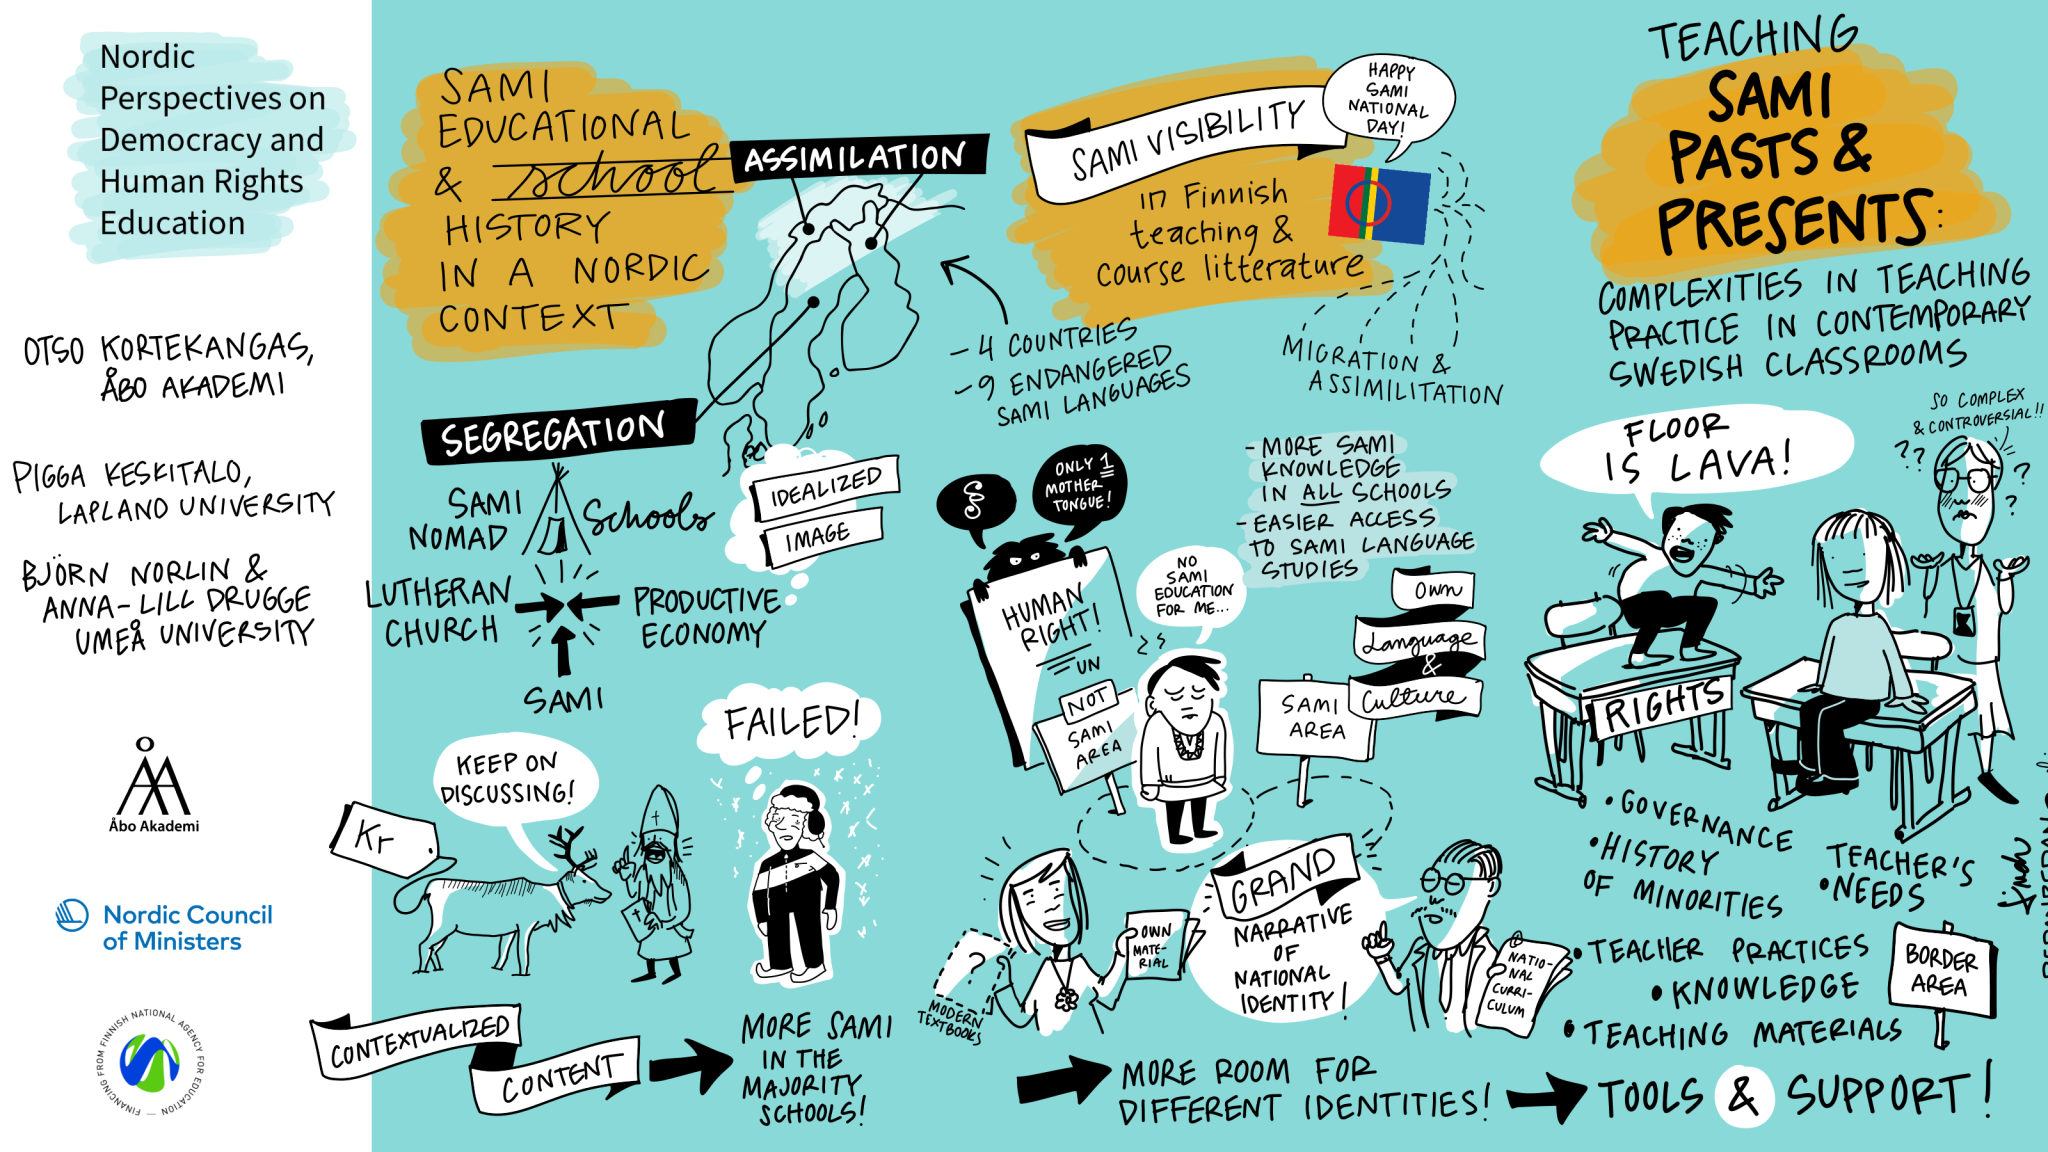 Nordic
Perspectives on
Democracy and
Human Rights
Education
OTSO KORTEKANGAS,
ÅBO AKADEMI
PIGGA KESKITALO,
LAPLAND UNIVERSITY
BJÖRN NORLIN &
ANNA-LILL DRUGGE
UMEÅ UNIVERSITY
Åbo Akademi
Nordic Council
of Ministers
FINANCING FROM FINNISH NATIONAL AGENCY FOR EDUCATION
SAMI
EDUCATIONAL
& school
HISTORY
IN A NORDIC
CONTEXT
ASSIMILATION
SEGREGATION
- 4 COUNTRIES
- 9 ENDANGERED
SAMI LANGUAGES
SAMI
NOMAD
Schools
IDEALIZED
IMAGE
LUTHERAN
CHURCH
PRODUCTIVE
ECONOMY
SAMI
KEEP ON
DISCUSSING!
Kr
FAILED!
CONTEXTUALIZED
CONTENT
MORE SAMI
IN THE
MAJORITY
SCHOOLS!
SAMI VISIBILITY
in Finnish
teaching &
course litterature
HAPPY
SAMI
NATIONAL
DAY!
MIGRATION &
ASSIMILITATION
§
ONLY 1
MOTHER
TONGUE!
HUMAN
RIGHT!
UN
NOT
SAMI
AREA
NO
SAMI
EDUCATION
FOR ME...
- MORE SAMI
KNOWLEDGE
IN ALL SCHOOLS
- EASIER ACCESS
TO SAMI LANGUAGE
STUDIES
OWN
Language
&
Culture
SAMI
AREA
?
MODERN
TEXTBOOKS
OWN
MATE-
RIAL
GRAND
NARRATIVE
OF
NATIONAL
IDENTITY!
NATIO-
NAL
CURRI-
CULUM
MORE ROOM FOR
DIFFERENT IDENTITIES!
TEACHING
SAMI
PASTS &
PRESENTS:
COMPLEXITIES IN TEACHING
PRACTICE IN CONTEMPORARY
SWEDISH CLASSROOMS
FLOOR
IS LAVA!
SO COMPLEX
& CONTROVERSIAL!!
??
?
?
RIGHTS
• GOVERNANCE
• HISTORY
OF MINORITIES
TEACHER'S
• NEEDS
• TEACHER PRACTICES
• KNOWLEDGE
• TEACHING MATERIALS
BORDER
AREA
TOOLS & SUPPORT!